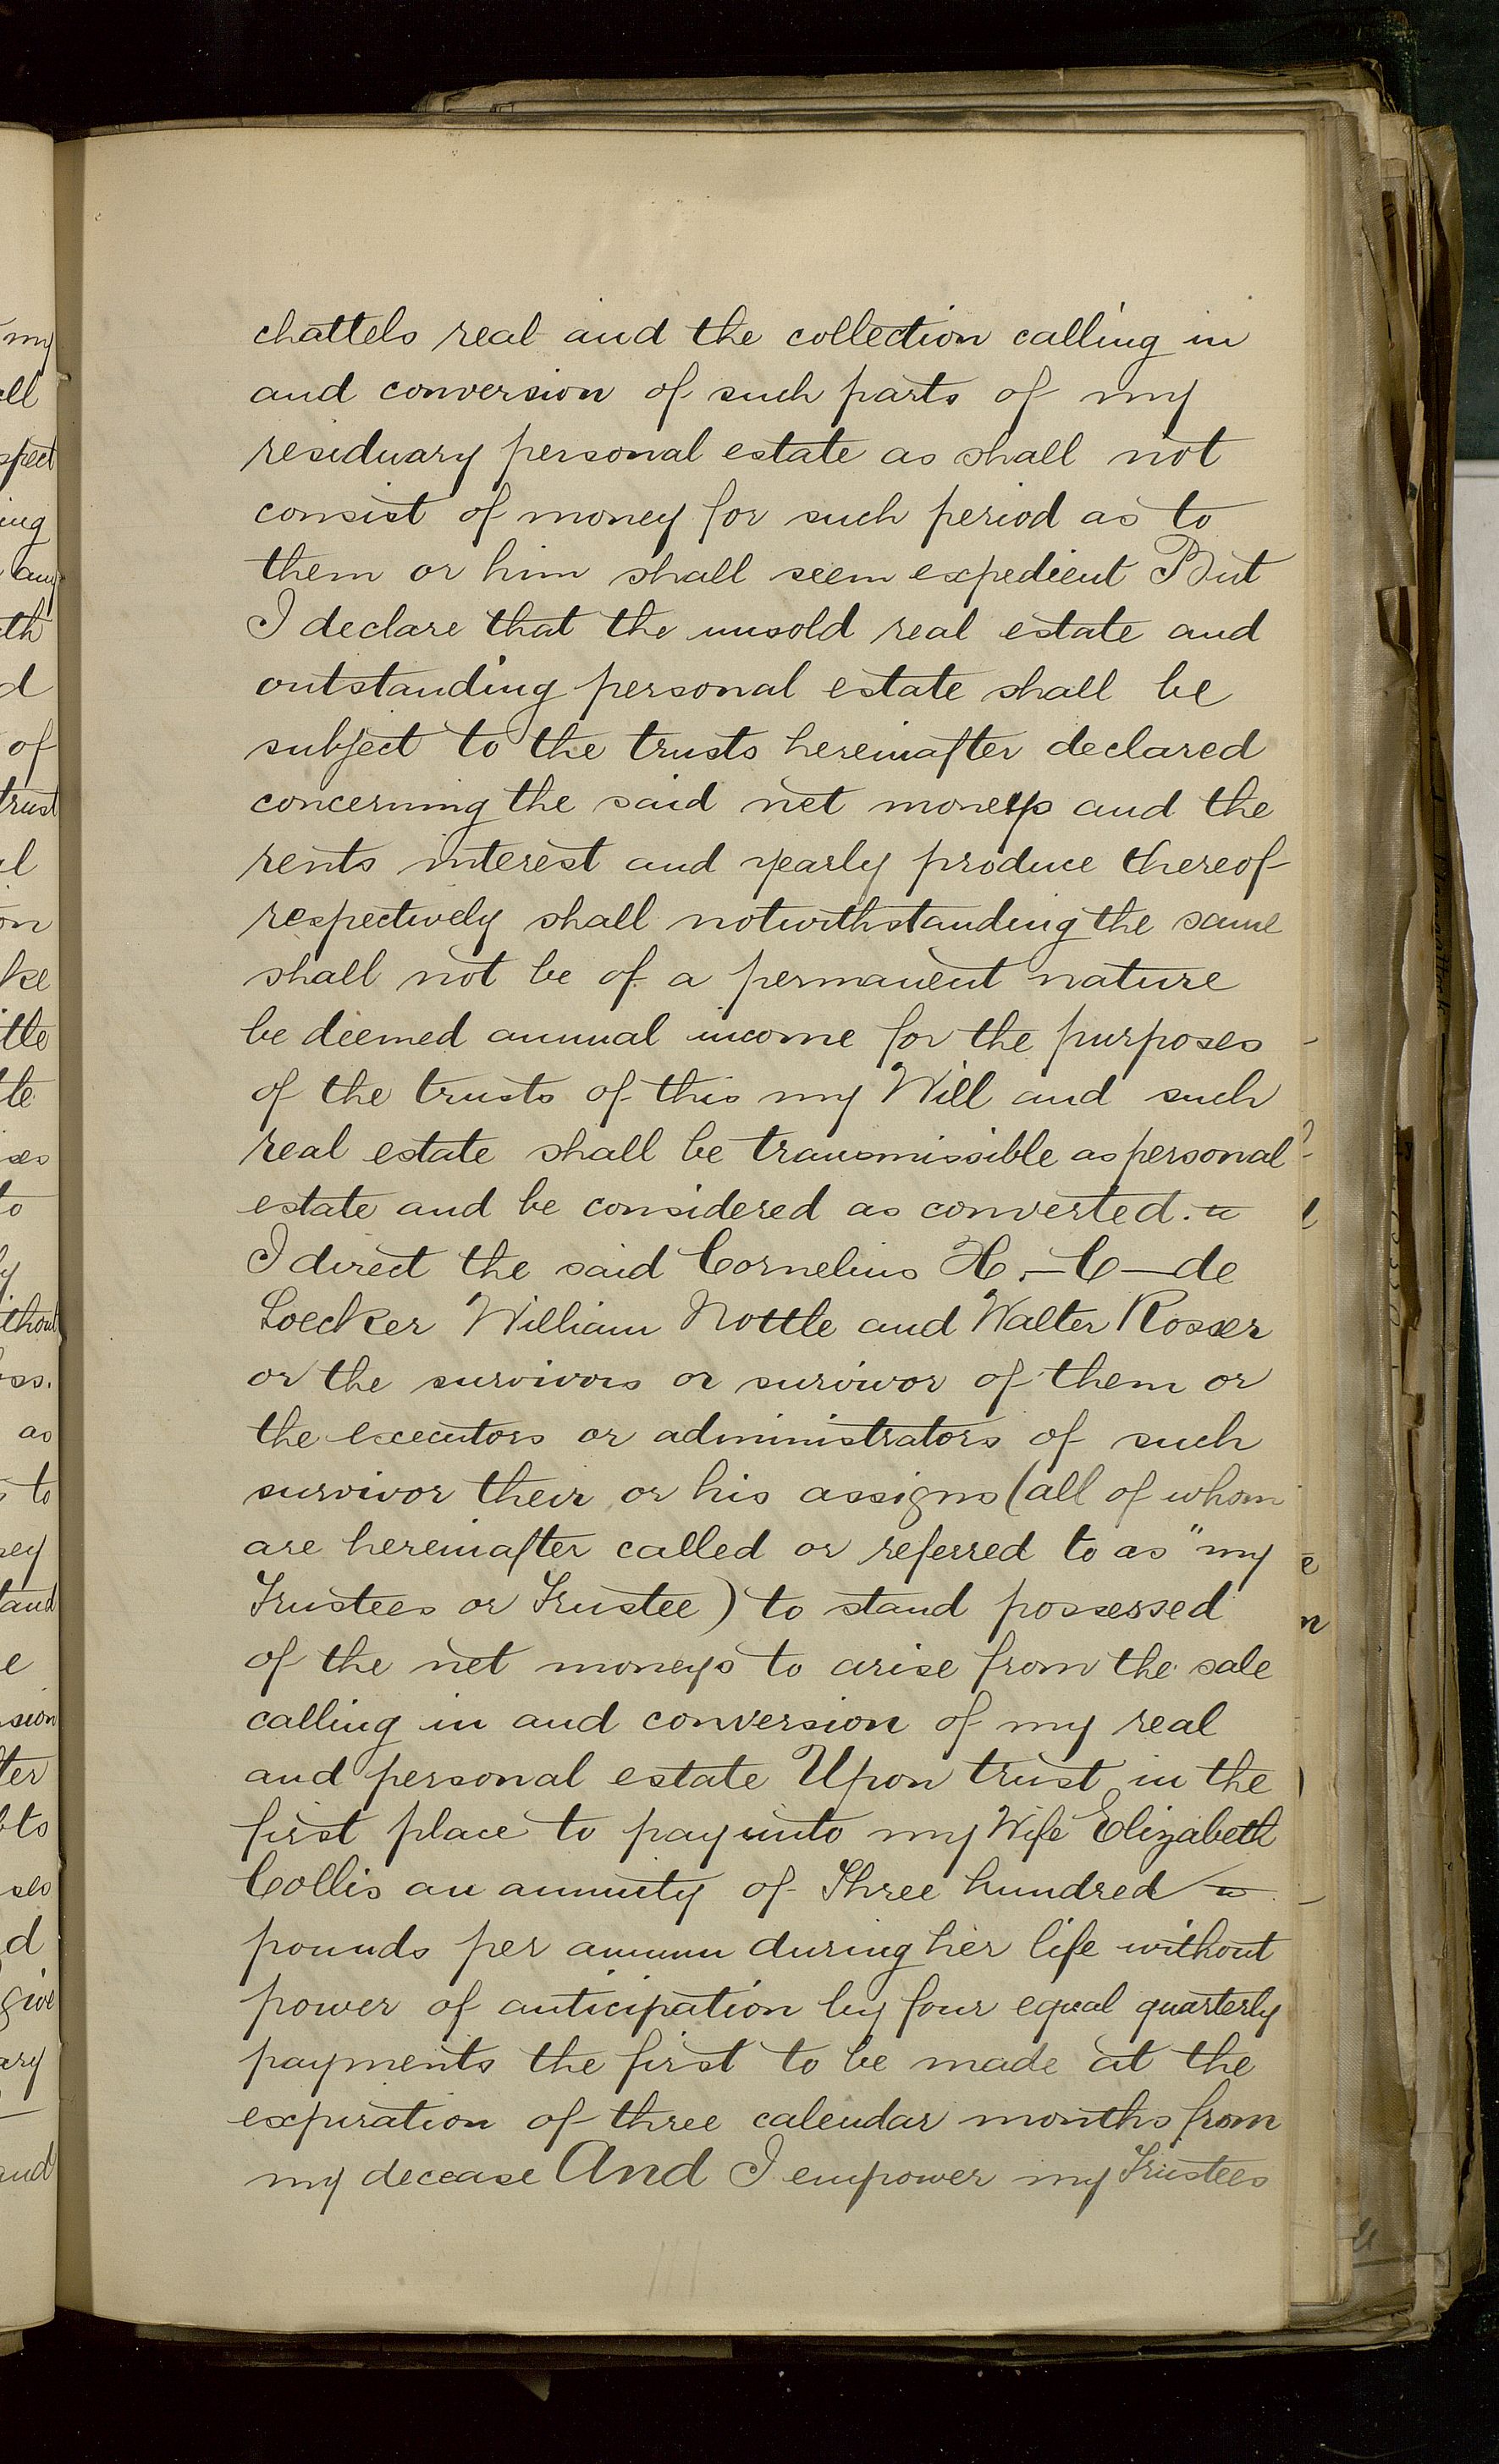 chattels real and the collection calling in
and conversion of such parts of my
residuary personal estate as shall not
consist of money for such period as to
them or him shall seem expedient But
I declare that the unsold real estate and
outstanding personal estate shall be
subject to the trusts hereinafter declared
concerning the said net moneys and the
rents interest and yearly produce thereof
respectively shall notwithstanding the same
shall not be of a permanent nature
be deemed annual income for the purposes
of the trusts of this my Will and such
real estate shall be transmissible as personal
estate and be considered as converted.
I direct the said Cornelius H.—C—de
Loecker William Nottle and Walter Rosser
or the survivors or survivor of them or
the executors or administrators of such
survivor their or his assigns (all of whom
are hereinafter called or referred to as "my
Trustees or Trustee) to stand possessed
of the net moneys to arise from the sale
calling in and conversion of my real
and personal estate Upon trust in the
first place to pay unto my Wife Elizabeth
Collis an annuity of Three hundred
pounds per annum during her life without
power of anticipation by four equal quarterly
payments the first to be made at the
expiration of three calendar months from
my decease And I empower my Trustees